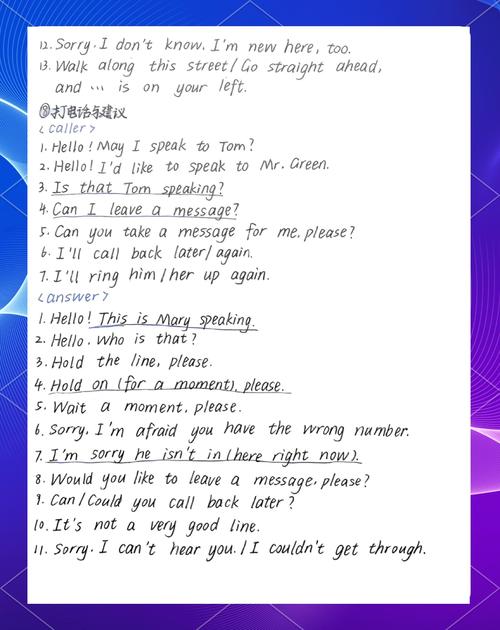 12. Sorry. I don't know. I'm new here, too.
13. Walk along this street/Go straight ahead,
and ... is on your left.
⑧打电话与建议
<caller>
1. Hello! May I speak to Tom?
2. Hello! I'd like to speak to Mr. Green.
3. Is that Tom speaking?
4. Can I leave a message?
5. Can you take a message for me, please?
6. I'll call back later/again.
7. I'll ring him/her up again.
<answer>
1. Hello! This is Mary speaking.
2. Hello. Who is that?
3. Hold the line, please.
4. Hold on (for a moment), please.
5. Wait a moment, please.
6. Sorry, I'm afraid you have the wrong number.
7. I'm sorry he isn't in (here right now).
8. Would you like to leave a message, please?
9. Can/Could you call back later?
10. It's not a very good line.
11. Sorry. I can't hear you./I couldn't get through.